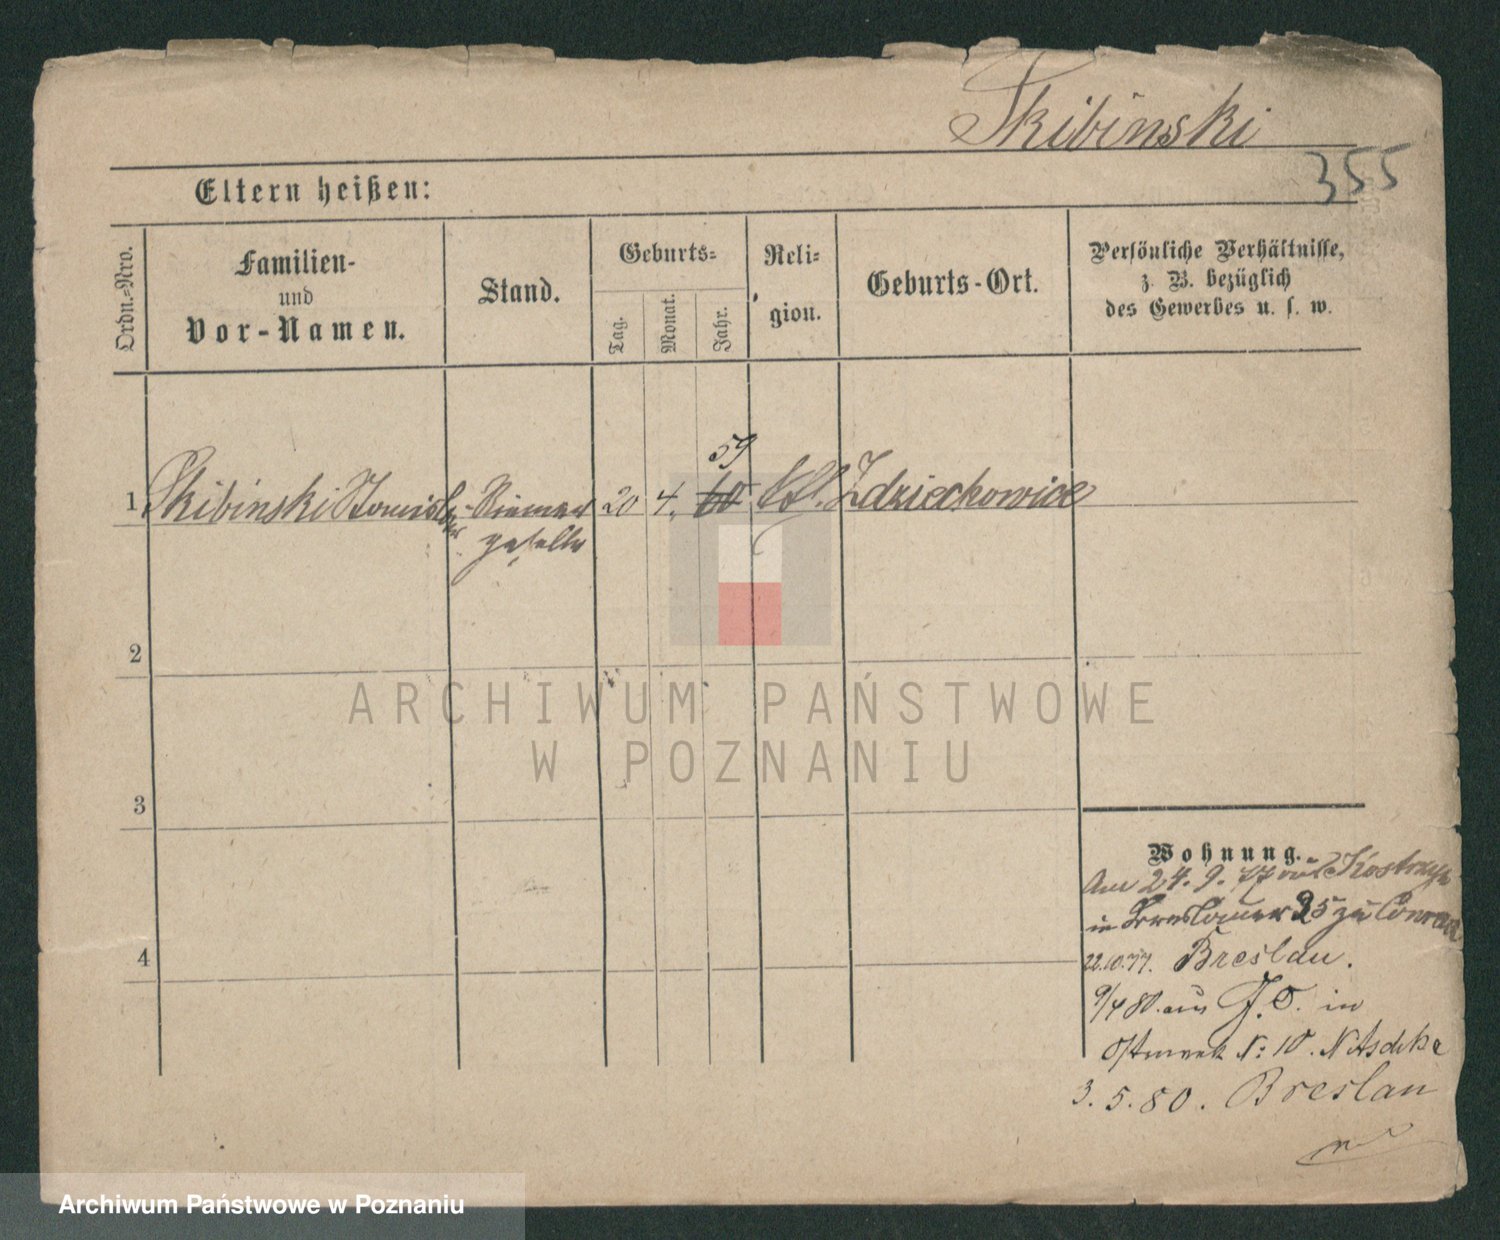 Skibinski
355
Eltern heißen:
Ordn.-Nro.
Familien-
und
Vor-Namen.
Stand.
Geburts-
Tag.
Monat.
Jahr.
Reli-
gion.
Geburts-Ort.
Persönliche Verhältnisse,
z. B. bezüglich
des Gewerbes u. s. w.
59
1 Skibinski Stanislaus Riemer 20 4. 60 kath. Zdziechowice
geselle
2
3
4
Wohnung.
Am 24. 9. 77 aus Kostrzyn
in Breslauer 35 zu Conrad
22.10.77. Breslau.
9/4 80. aus J. O. in
Ostrowek N: 10. Nitschke
3. 5. 80. Breslau
ARCHIWUM PAŃSTWOWE
W POZNANIU
Archiwum Państwowe w Poznaniu